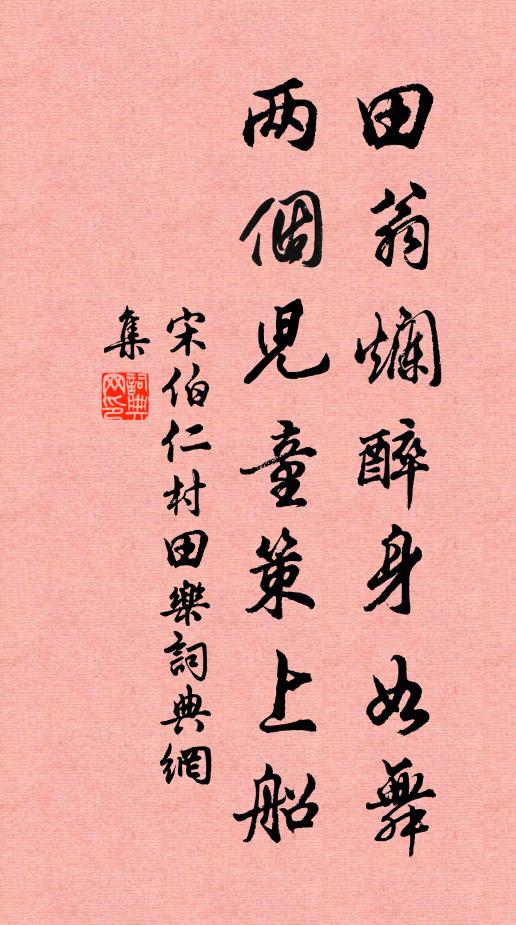 田翁爛醉身如舞
两個児童策上船
宋伯仁村田樂詞典網
集
詞典
网印